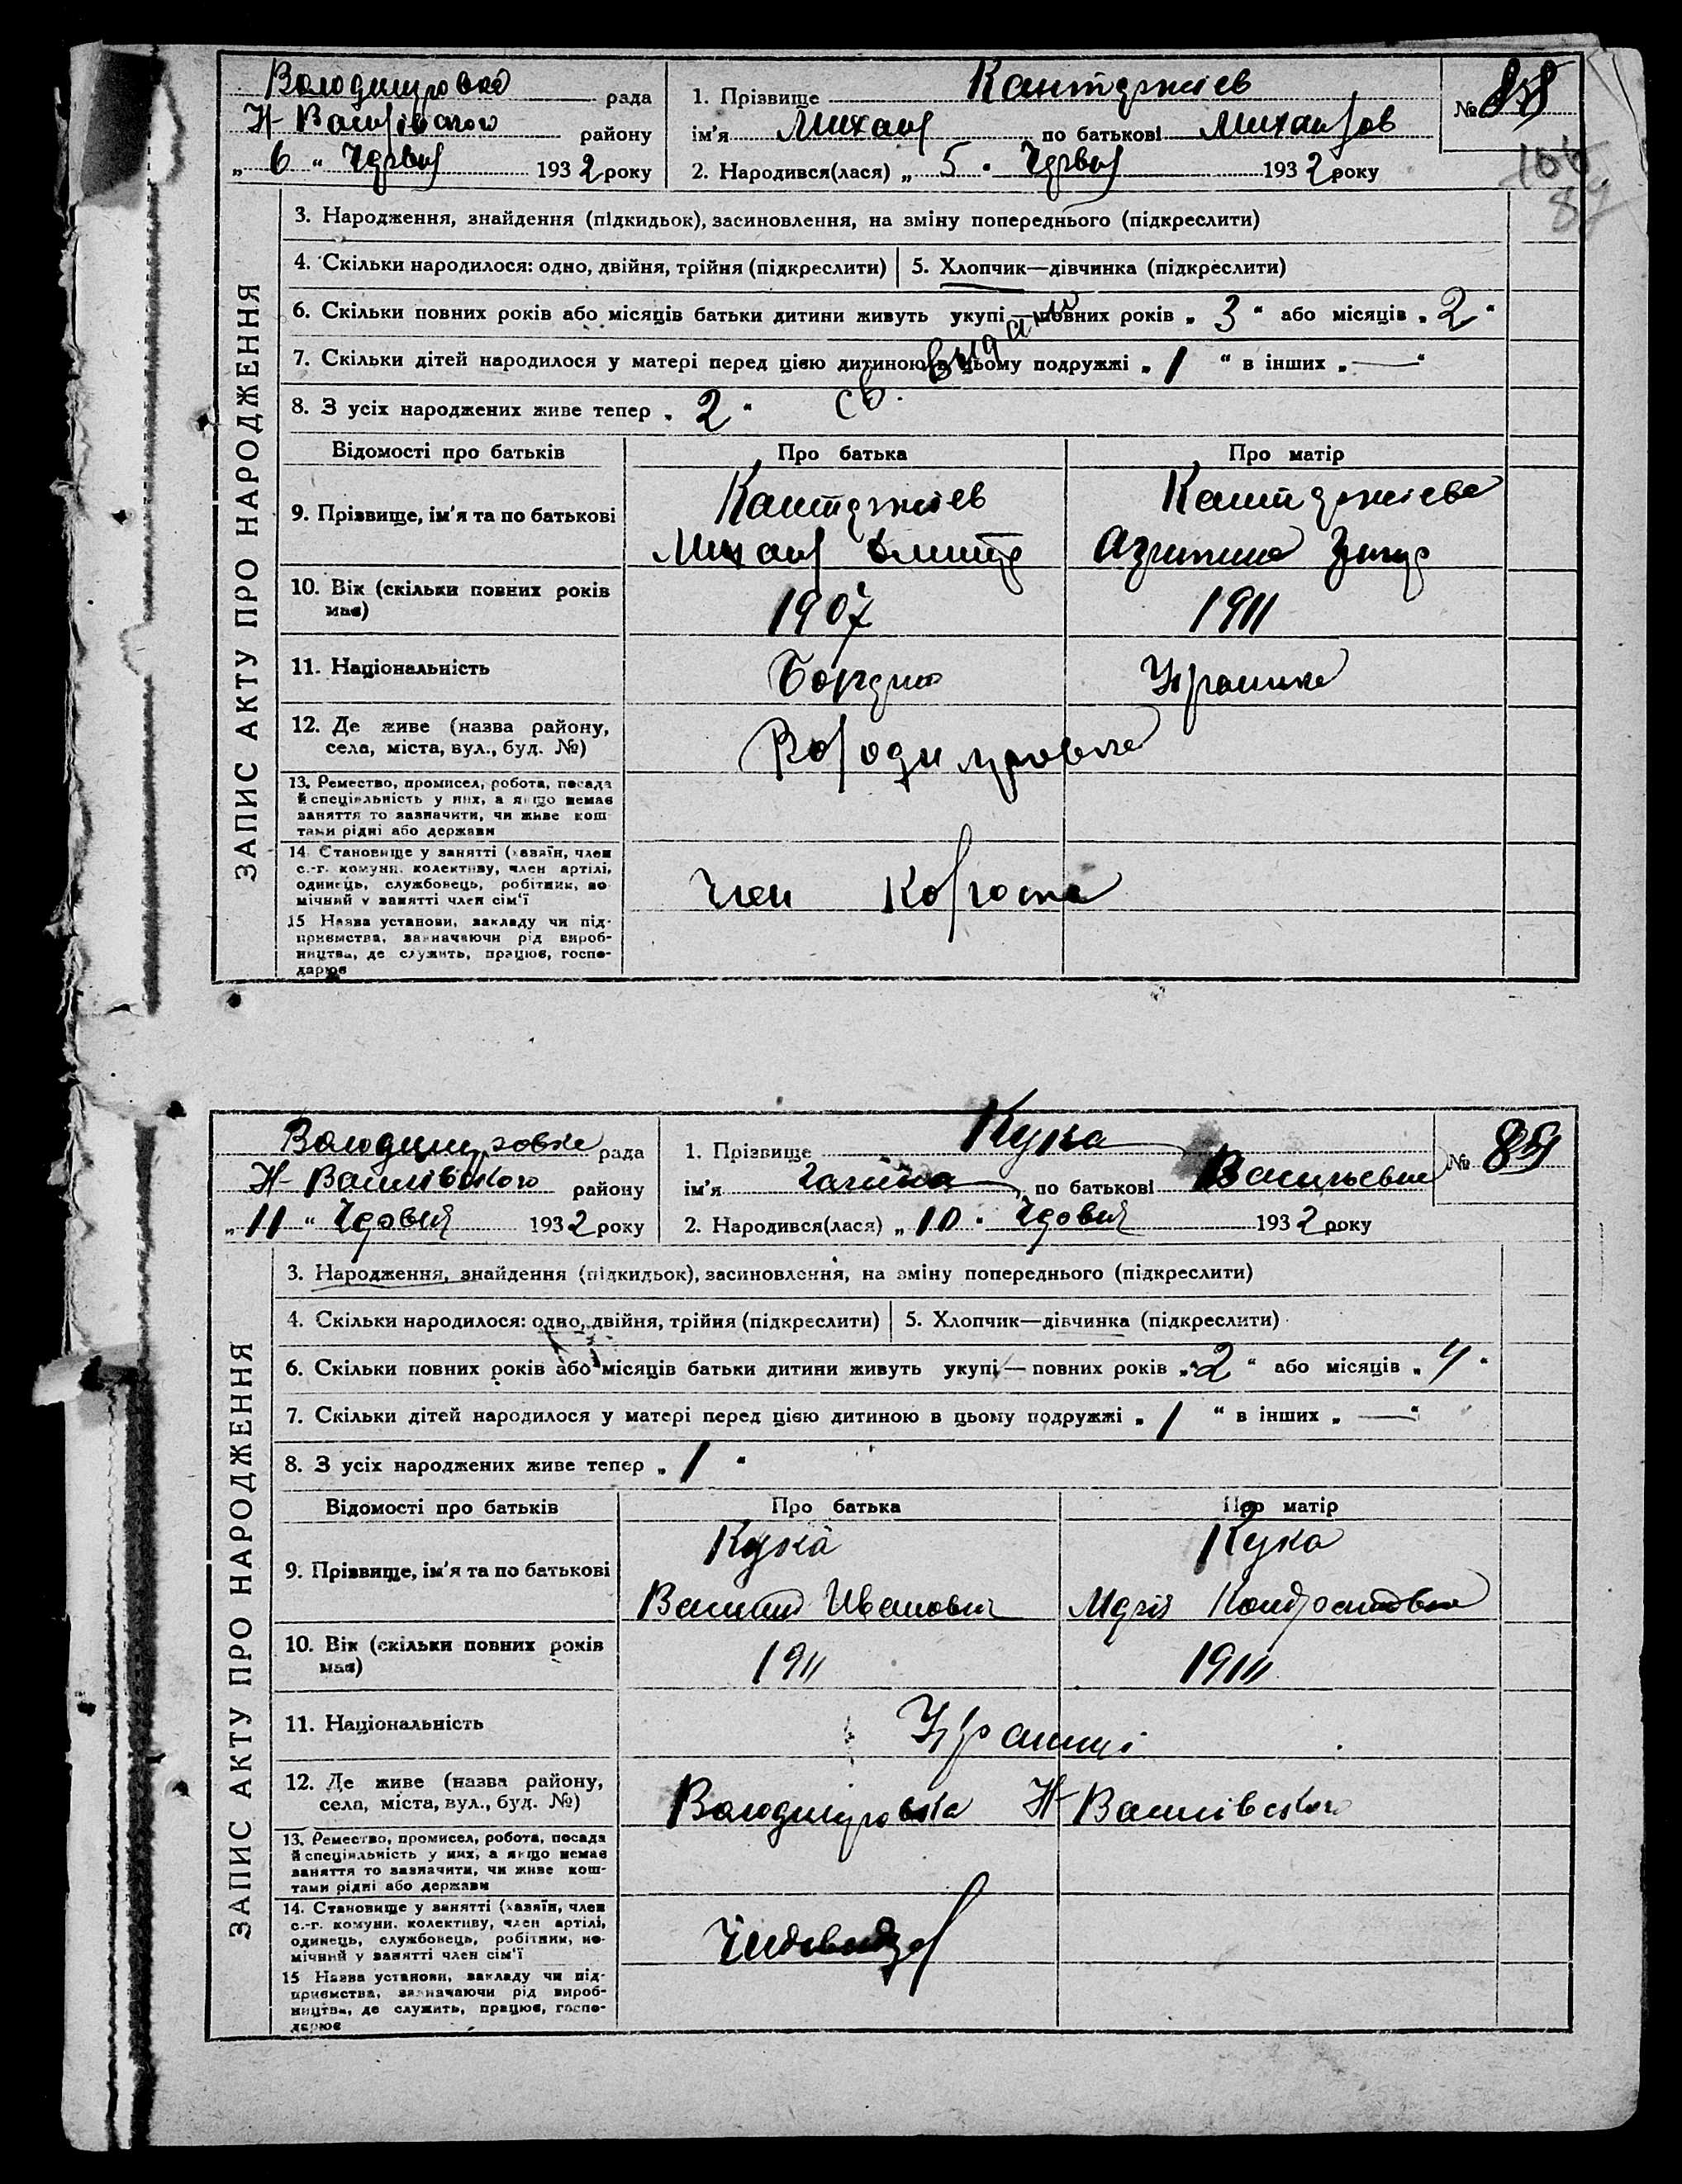 ЗАПИС АКТУ ПРО НАРОДЖЕННЯ
Володимировка рада
Н-Василівського району
„ 6 “ Червня 1932 року
1. Прізвище Кантаржиєв
ім'я Михаил по батькові Михаилов
2. Народився(лася) „ 5 “ Червня 1932 року
№ 88
106
87
3. Народження, знайдення (підкидьок), засиновлення, на зміну попереднього (підкреслити)
4. Скільки народилося: одно, двійня, трійня (підкреслити)
5. Хлопчик—дівчинка (підкреслити)
6. Скільки повних років або місяців батьки дитини живуть укупі — повних років „ 3 “ або місяців „ 2 “
7. Скільки дітей народилося у матері перед цією дитиною в цьому подружжі „ 1 “ в інших „ — “
8. З усіх народжених живе тепер „ 2 “
св. видано
Відомості про батьків Про батька Про матір
9. Прізвище, ім'я та по батькові
Кантаржиєв
Михаил
Кантаржиєва
10. Вік (скільки повних років має) 1907 1911
11. Національність Болгарин Українка
12. Де живе (назва району, села, міста, вул., буд. №) Володимировка
13. Ремество, промисел, робота, посада
й спеціяльність у них, а якщо немає
заняття то зазначити, чи живе кош-
тами рідні або держави
14. Становище у занятті (хазяїн, член
с.-г. комуни, колективу, член артілі,
одинець, службовець, робітник, по-
мічний у занятті член сім'ї
Член Колгоспа
15 Назва установи, закладу чи під-
приємства, зазначаючи рід вироб-
ництва, де служить, працює, госпо-
дарює
ЗАПИС АКТУ ПРО НАРОДЖЕННЯ
Володимировка рада
Н-Василівського району
„ 11 “ Червня 1932 року
1. Прізвище Кука
ім'я Галина по батькові Васильевна
2. Народився(лася) „ 10 “ Червня 1932 року
№ 89
3. Народження, знайдення (підкидьок), засиновлення, на зміну попереднього (підкреслити)
4. Скільки народилося: одно, двійня, трійня (підкреслити)
5. Хлопчик—дівчинка (підкреслити)
6. Скільки повних років або місяців батьки дитини живуть укупі — повних років „ 2 “ або місяців „ 4 “
7. Скільки дітей народилося у матері перед цією дитиною в цьому подружжі „ 1 “ в інших „ — “
8. З усіх народжених живе тепер „ 1 “
Відомості про батьків Про батька Про матір
9. Прізвище, ім'я та по батькові
Кука
Василий Иванович
Кука
Мария Кондратовна
10. Вік (скільки повних років має) 1911 1911
11. Національність Українці
12. Де живе (назва району, села, міста, вул., буд. №) Володимировка Н-Василівського
13. Ремество, промисел, робота, посада
й спеціяльність у них, а якщо немає
заняття то зазначити, чи живе кош-
тами рідні або держави
14. Становище у занятті (хазяїн, член
с.-г. комуни, колективу, член артілі,
одинець, службовець, робітник, по-
мічний у занятті член сім'ї
15 Назва установи, закладу чи під-
приємства, зазначаючи рід вироб-
ництва, де служить, працює, госпо-
дарює